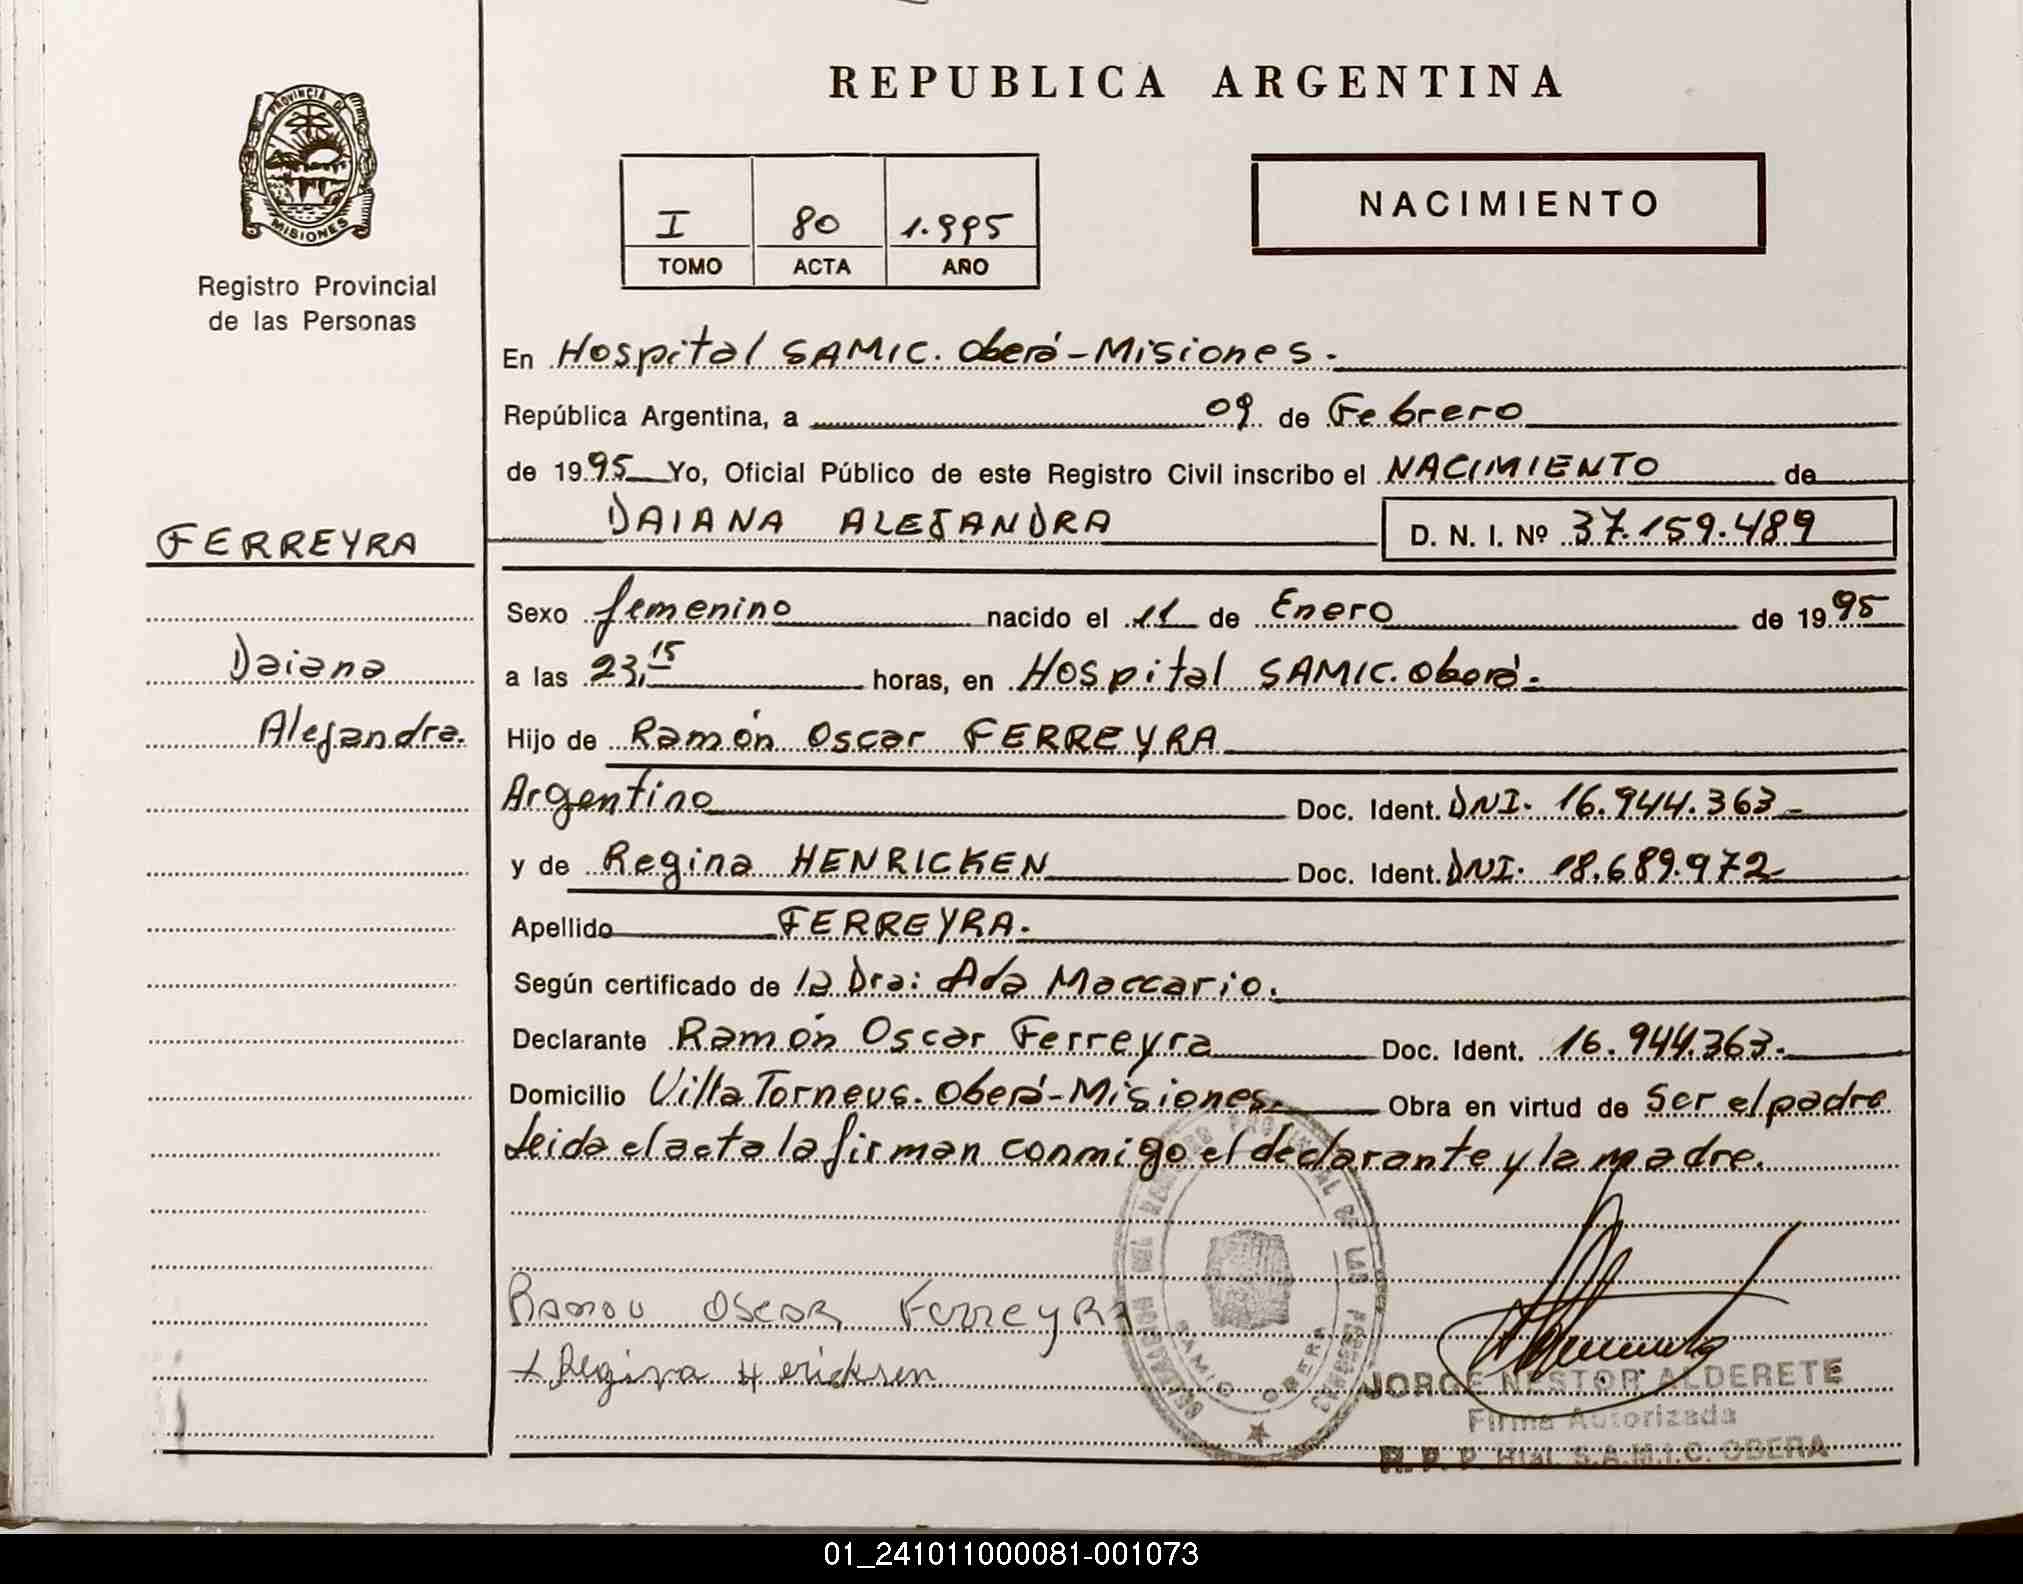 REPUBLICA ARGENTINA
PROVINCIA DE
MISIONES
Registro Provincial
de las Personas
I 80 1.995
TOMO ACTA AÑO
NACIMIENTO
En Hospital SAMIC. Oberá-Misiones.
República Argentina, a 09 de Febrero
de 1995 Yo, Oficial Público de este Registro Civil inscribo el NACIMIENTO de
DAIANA ALEJANDRA D. N. I. Nº 37.159.489
FERREYRA
Daiana
Alejandra.
Sexo femenino nacido el 11 de Enero de 1995
a las 23,15 horas, en Hospital SAMIC. Oberá.
Hijo de Ramón Oscar FERREYRA
Argentino Doc. Ident. DNI. 16.944.363
y de Regina HENRICKEN Doc. Ident. DNI. 18.689.972
Apellido FERREYRA.
Según certificado de la Dra: Ada Maccario.
Declarante Ramón Oscar Ferreyra Doc. Ident. 16.944.363.
Domicilio Villa Torneus. Oberá-Misiones. Obra en virtud de Ser el padre
Leida el acta la firman conmigo el declarante y la madre.
DELEGACION DEL REGISTRO PROVINCIAL DE LAS PERSONAS
SAMIC OBERA
Ramon Oscar Ferreyra
x Regina Hericksen
JORGE NESTOR ALDERETE
Firma Autorizada
R. P. P. Htal. S.A.M.I.C. OBERA
01_241011000081-001073